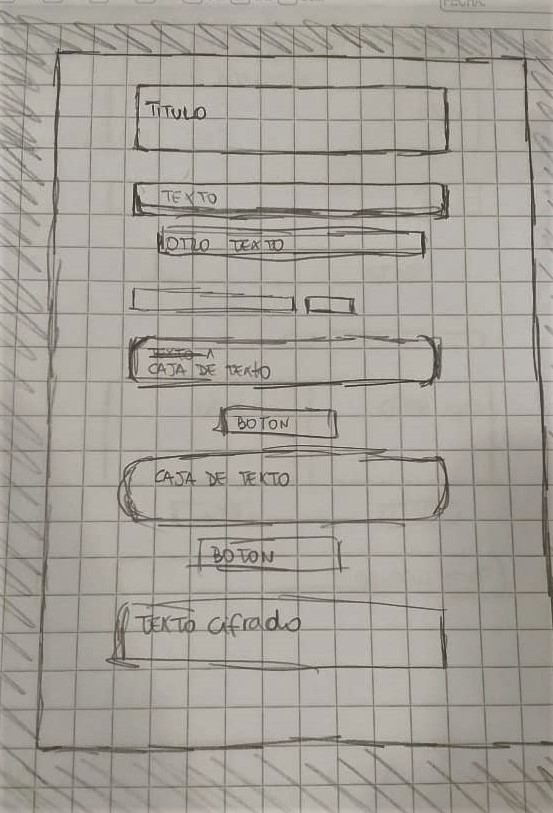 FECHA:
TITULO
TEXTO
OTRO TEXTO
CAJA DE TEXTO
BOTON
CAJA DE TEXTO
BOTON
TEXTO cifrado